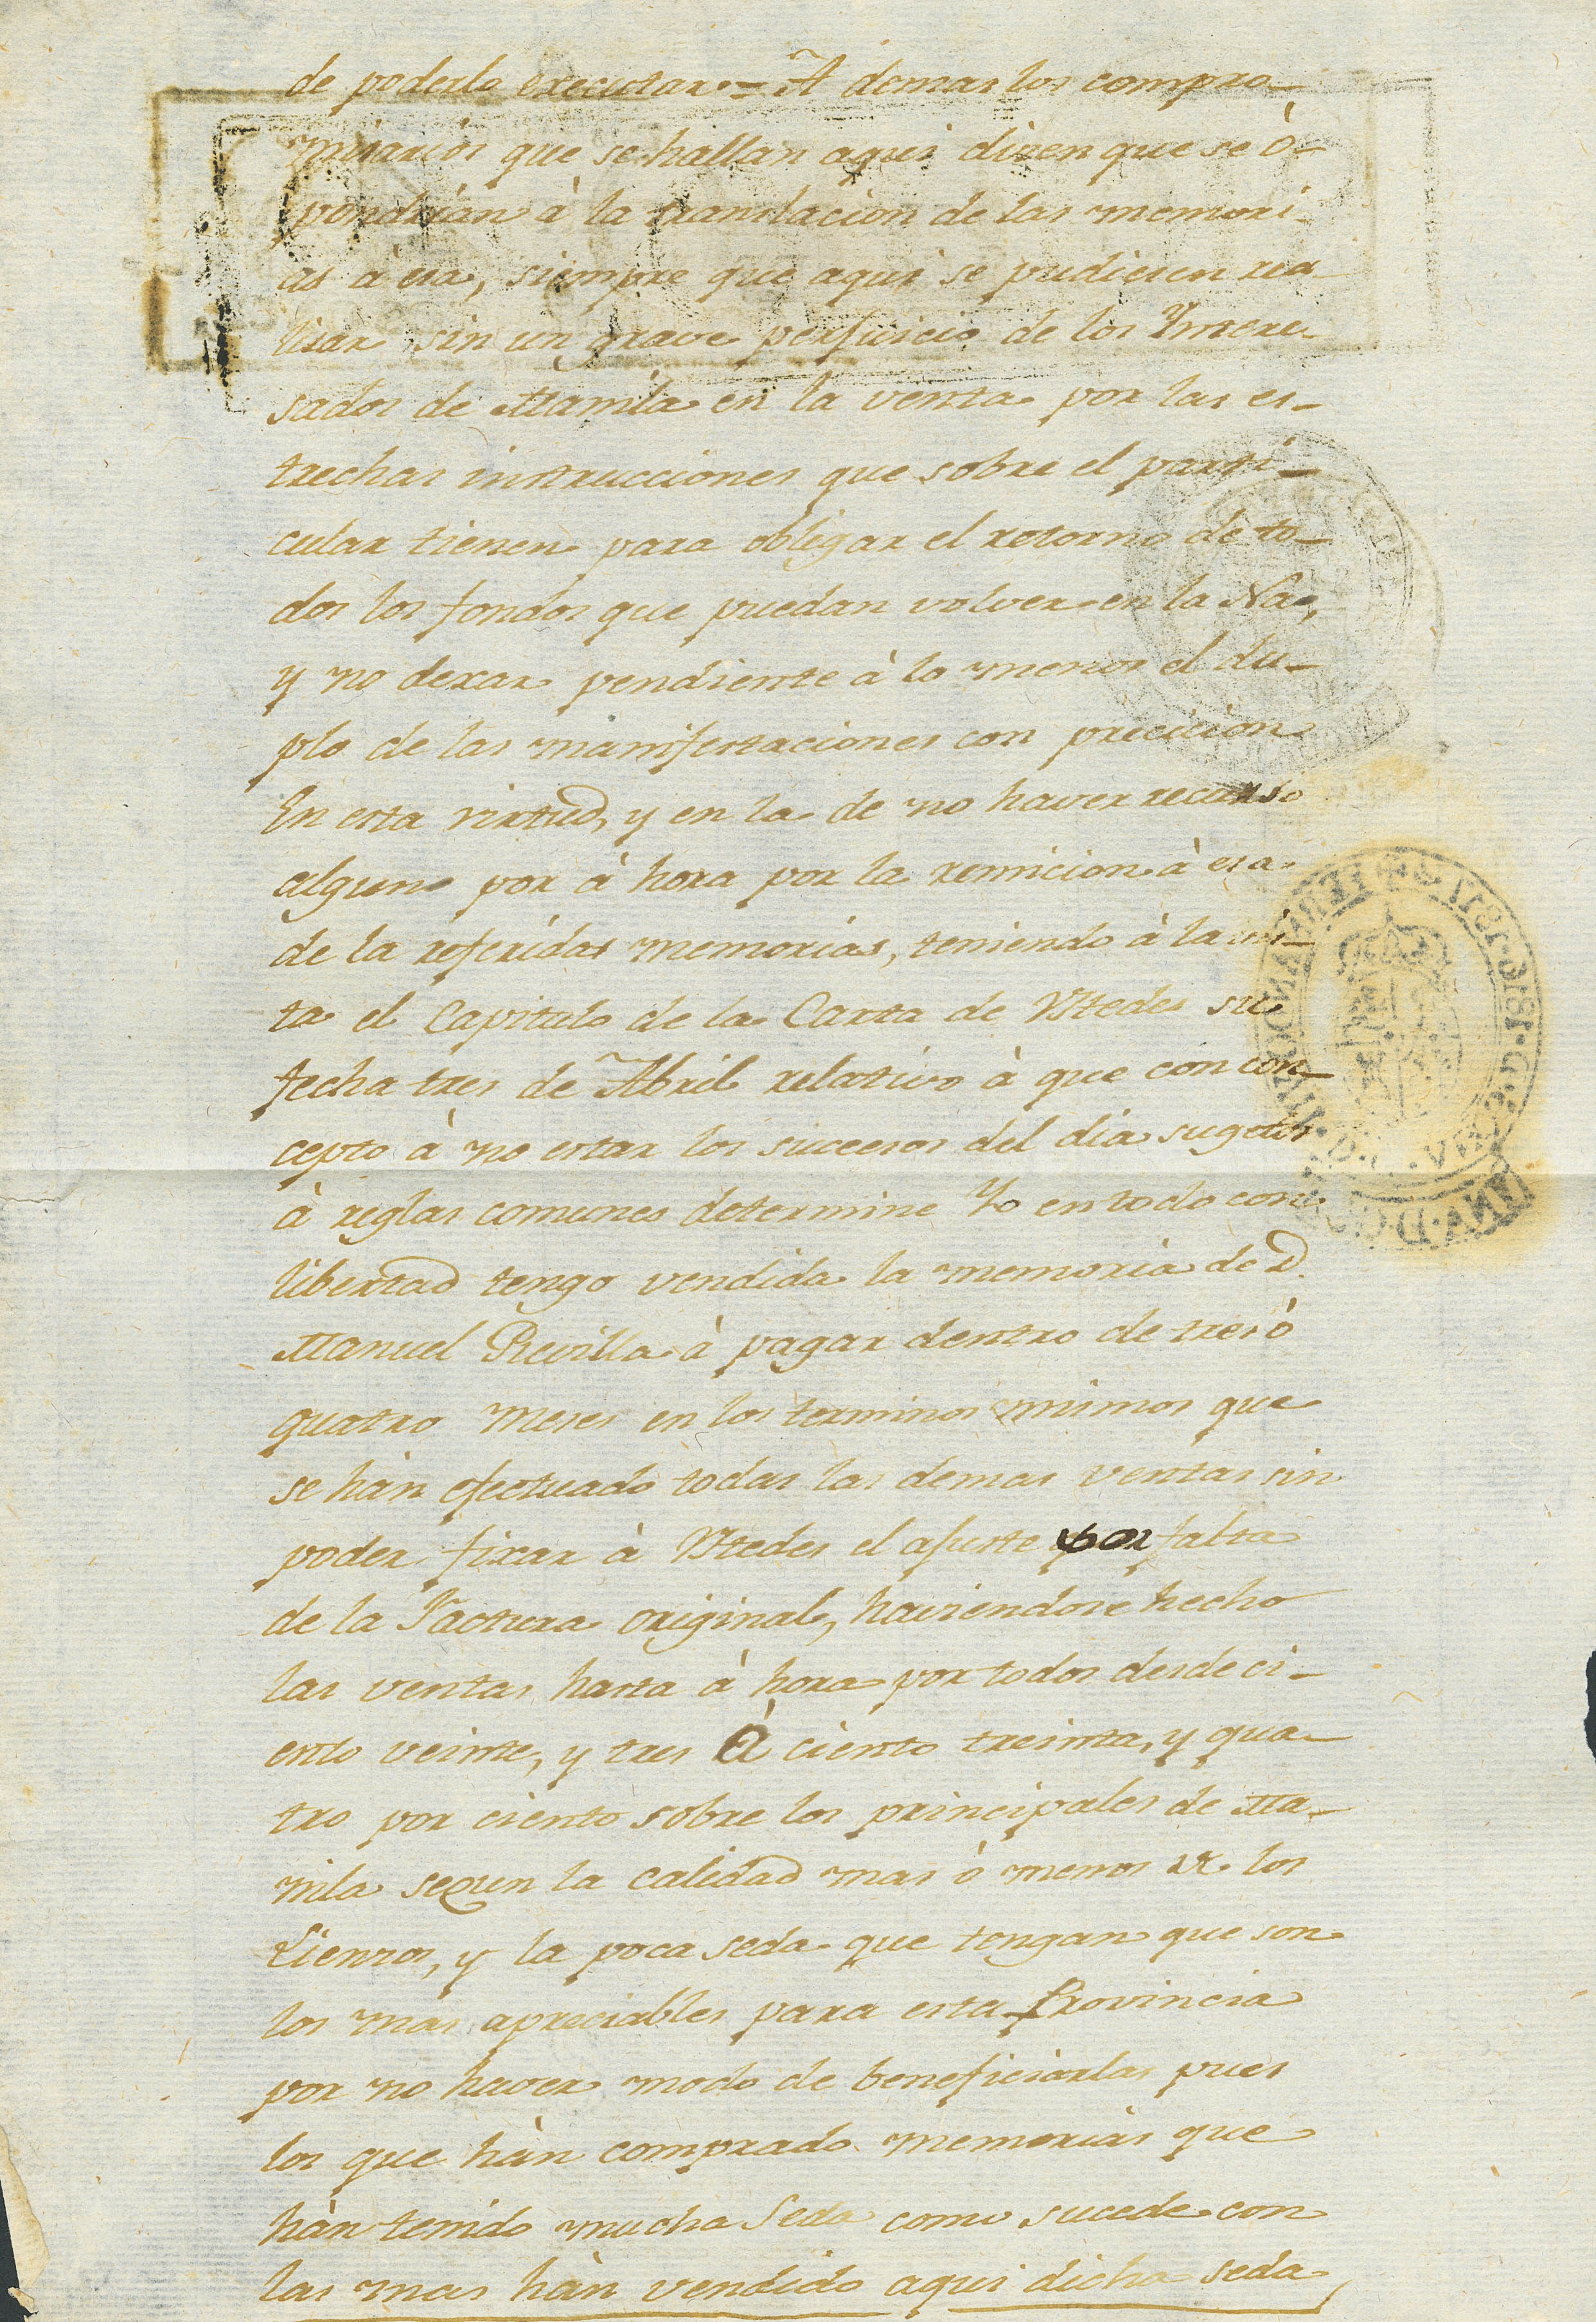 de poderlo executar.= A demas los compro-
misarios que se hallan aqui dicen que se ò-
pondrian à la translacion de las memori-
as à esa, siempre que aqui se pudiesen rea-
lisar sin un grave perjuicio de los Yntere-
sados de Manila en la venta por las es-
trechas instrucciones que sobre el parti-
cular tienen para obligar el retorno de to-
dos los fondos que puedan volver en la Nao,
y no dexar pendiente à lo menos el du-
plo de las manifestaciones con precicion
En esta virtud, y en la de no haver recurso
alguno por à hora por la remicion à esa
de la referidas memorias, teniendo à la vis-
ta el Capitulo de la Carta de Ustedes su
fecha tres de Abril relativo à que con con-
cepto à no estar los succesos del dia sugetos
à reglas comunes determine Yo en todo con
libertad tengo vendida la memoria de D.
Manuel Revilla à pagar dentro de tres ò
quatro Meses en los terminos mismos que
se hàn efectuado todas las demas ventas sin
poder fixar à Ustedes el ajuste por falta
de la Factura original, haviendose hecho
las ventas hasta à hora por todos desde ci-
ento veinte, y tres à ciento treinta, y qua-
tro por ciento sobre los principales de Ma-
nila segun la calidad mas ò menos de los
Lienzos, y la poca seda que tengan que son
los mas apreciables para esta Provincia
por no haver modo de beneficiarlas pues
los que hàn comprado memorias que
hàn tenido mucha Seda como sucede con
las mas hàn vendido aqui dicha seda